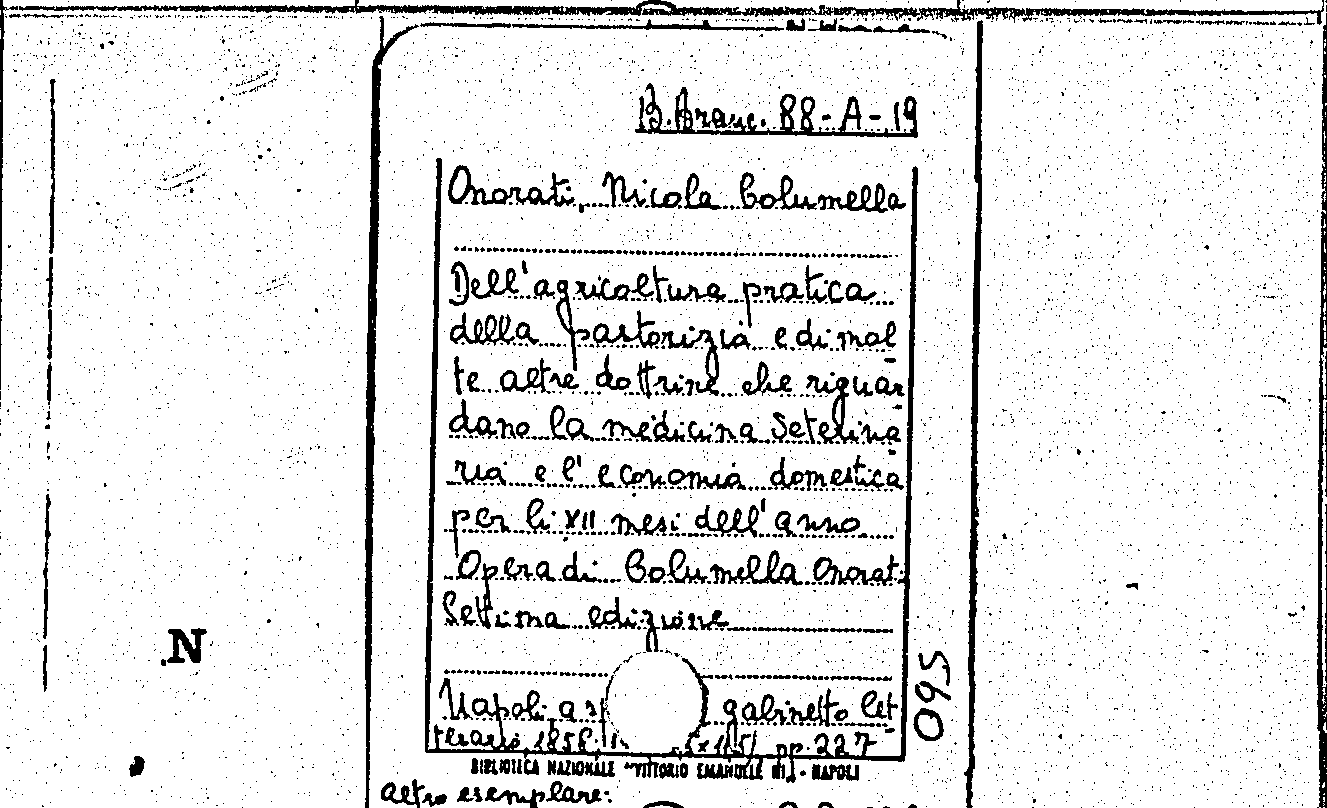 B. Branc. 88-A-19
Onorati, Nicola Columella
Dell'agricoltura pratica
della pastorizia e di mol
te altre dottrine che riguar
dano la medicina Veterina
ria e l'economia domestica
per li XII mesi dell'anno
Opera di Columella Onorati
Settima edizione
Napoli, a gabinetto let
terario, 1858, pp. 227
095
BIBLIOTECA NAZIONALE "VITTORIO EMANUELE III" - NAPOLI
altro esemplare:
N